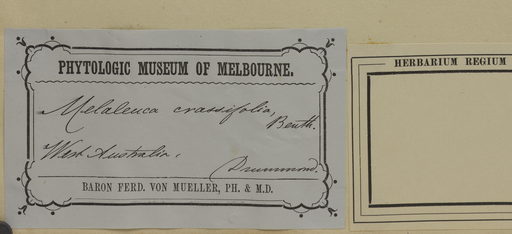 PHYTOLOGIC MUSEUM OF MELBOURNE.
Melaleuca crassifolia,
Benth.
West Australia.
Drummond.
BARON FERD. VON MUELLER, PH. & M.D.
HERBARIUM REGIUM